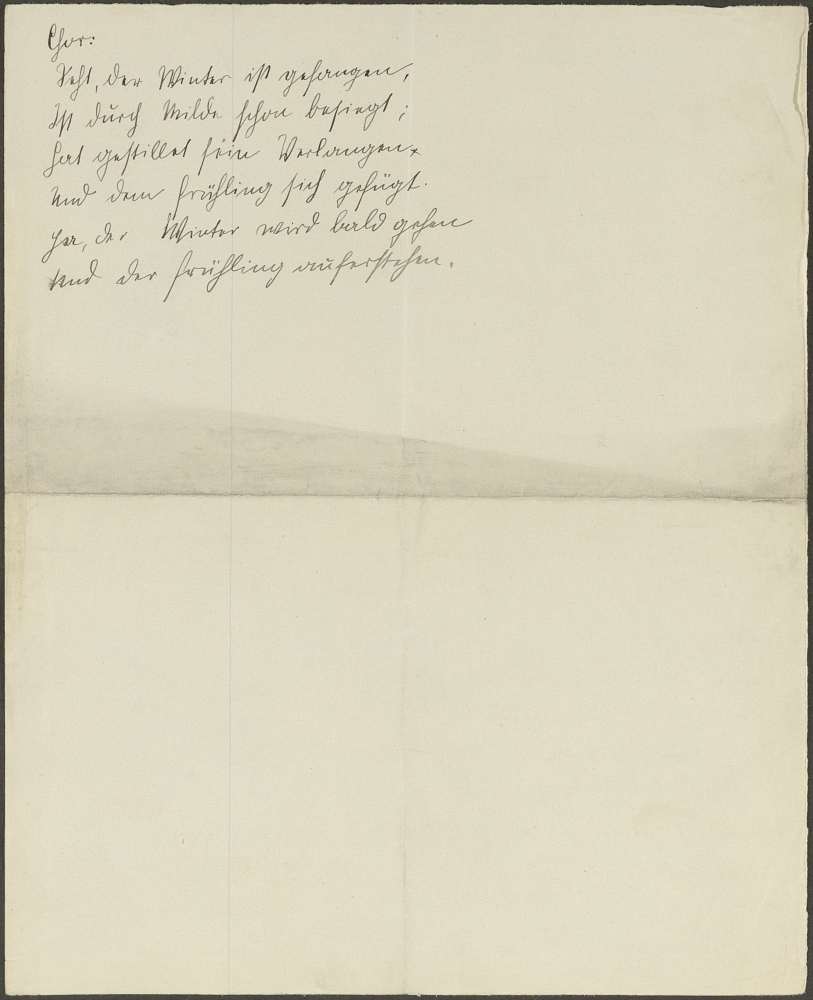 Chor:
Seht, der Winter ist gefangen,
Ist durch Milde schon besiegt;
Hat gestillet sein Verlangen,
Und dem Frühling sich gefügt.
Ja, der Winter wird bald gehen
Und der Frühling auferstehen.